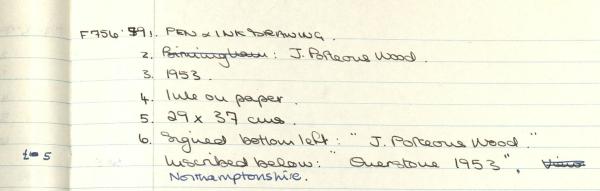 F756'591. PEN & INK DRAWING.
2. Birmingham: J. Porteous Wood.
3. 1953.
4. Ink on paper.
5. 29 x 37 cms.
6. Signed bottom left: "J. Porteous Wood."
Inscribed below: "Overstone 1953".
£ 5
Northamptonshire.